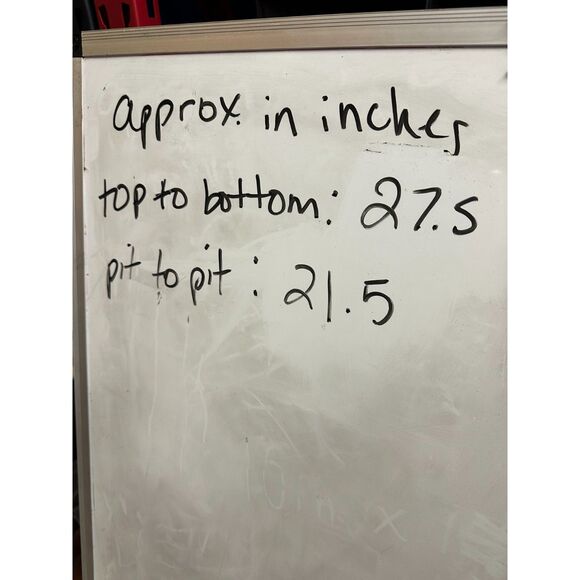 approx. in inches
top to bottom: 27.5
pit to pit: 21.5